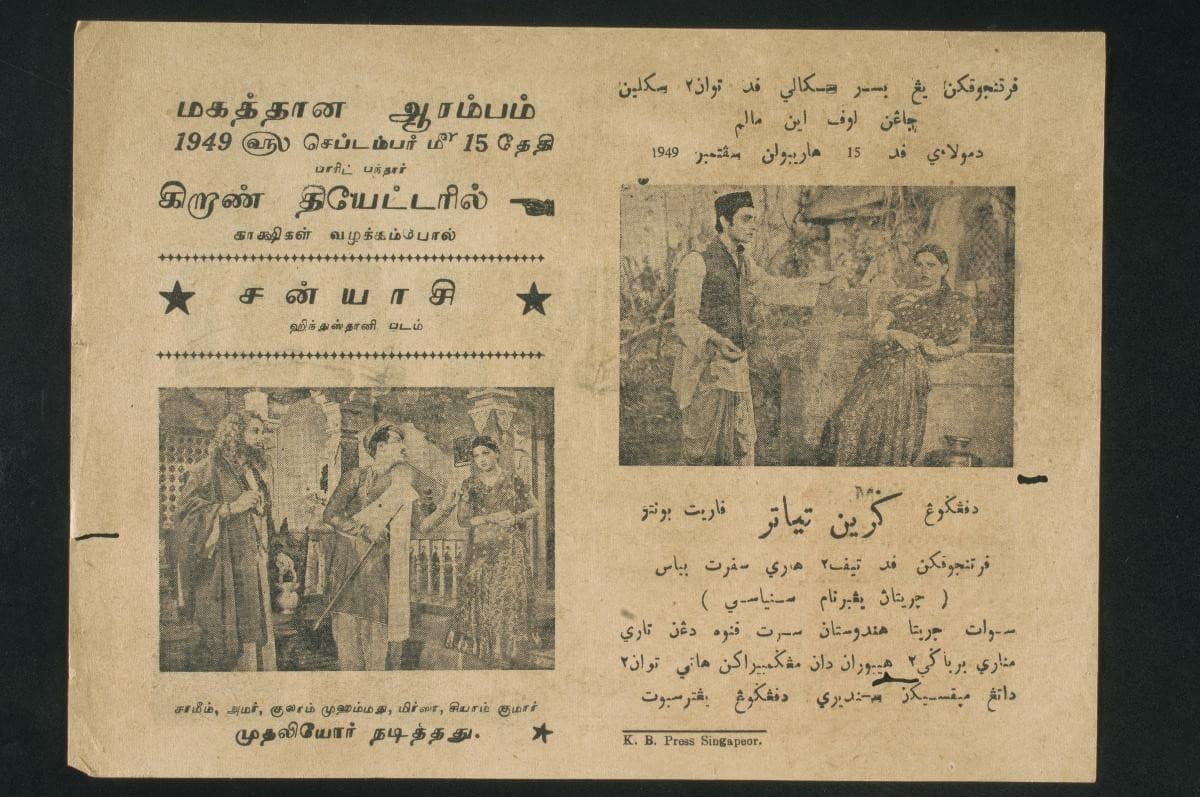 மகத்தான ஆரம்பம்
1949 ௵ செப்டம்பர் மீ 15 தேதி
பாரிட் பந்தார்
கிறூண் தியேட்டரில்
காக்ஷிகள் வழக்கம்போல்
சன்யாசி
ஹிந்துஸ்தானி படம்
சாமீம், அமர், குலாம் முஹம்மது, மிர்ஸா, சியாம் குமார்
முதலியோர் நடித்தது.
فرتنجوقکن يڠ بسر سکالي فد توان٢ سکلين
جاڠن لوف اين مالم
دمولاءي فد 15 هاريبولن سڤتمبر 1949
دفڠکوڠ کرين تياتر فاريت بونتر
فرتنجوقکن فد تيف٢ هاري سفرت بياس
( چريتاڽ يڠبرنام سنياسي )
سوات چريتا هندوستان سرت فنوه دڠن تاري
مناري برباݢي٢ هيبوران دان مڠݢمبيراکن هاتي توان٢
داتڠ ميقسيکن سنديري دفڠکوڠ يڠترسبوت
K. B. Press Singapeor.